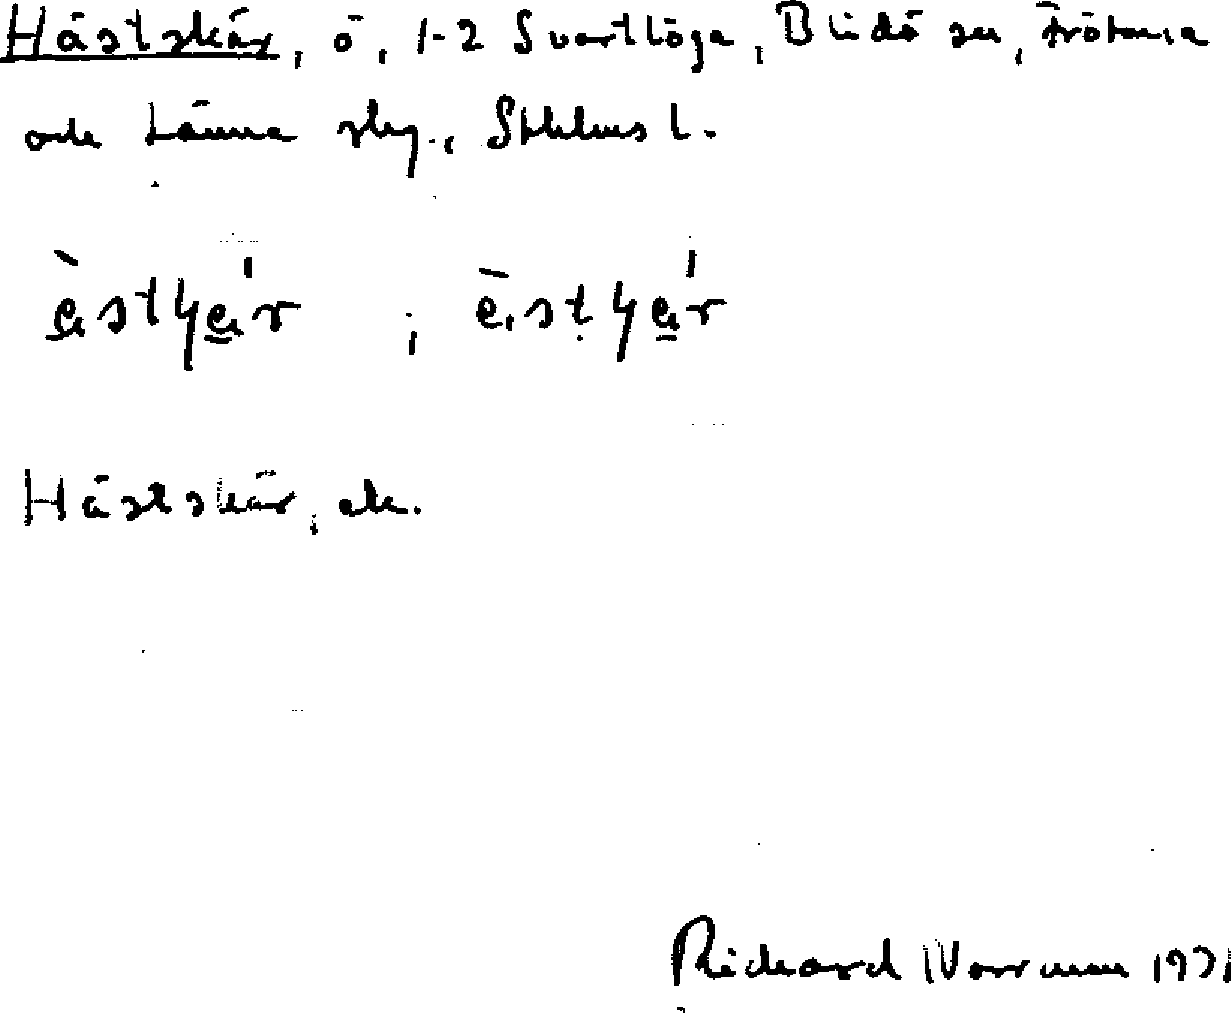 Hästskär, ö, 1-2 Svartlöga, Blidö sn, Frötuna
och Länna skg., Sthlms l.
Hästskär, ek.
Richard Norrman 1971